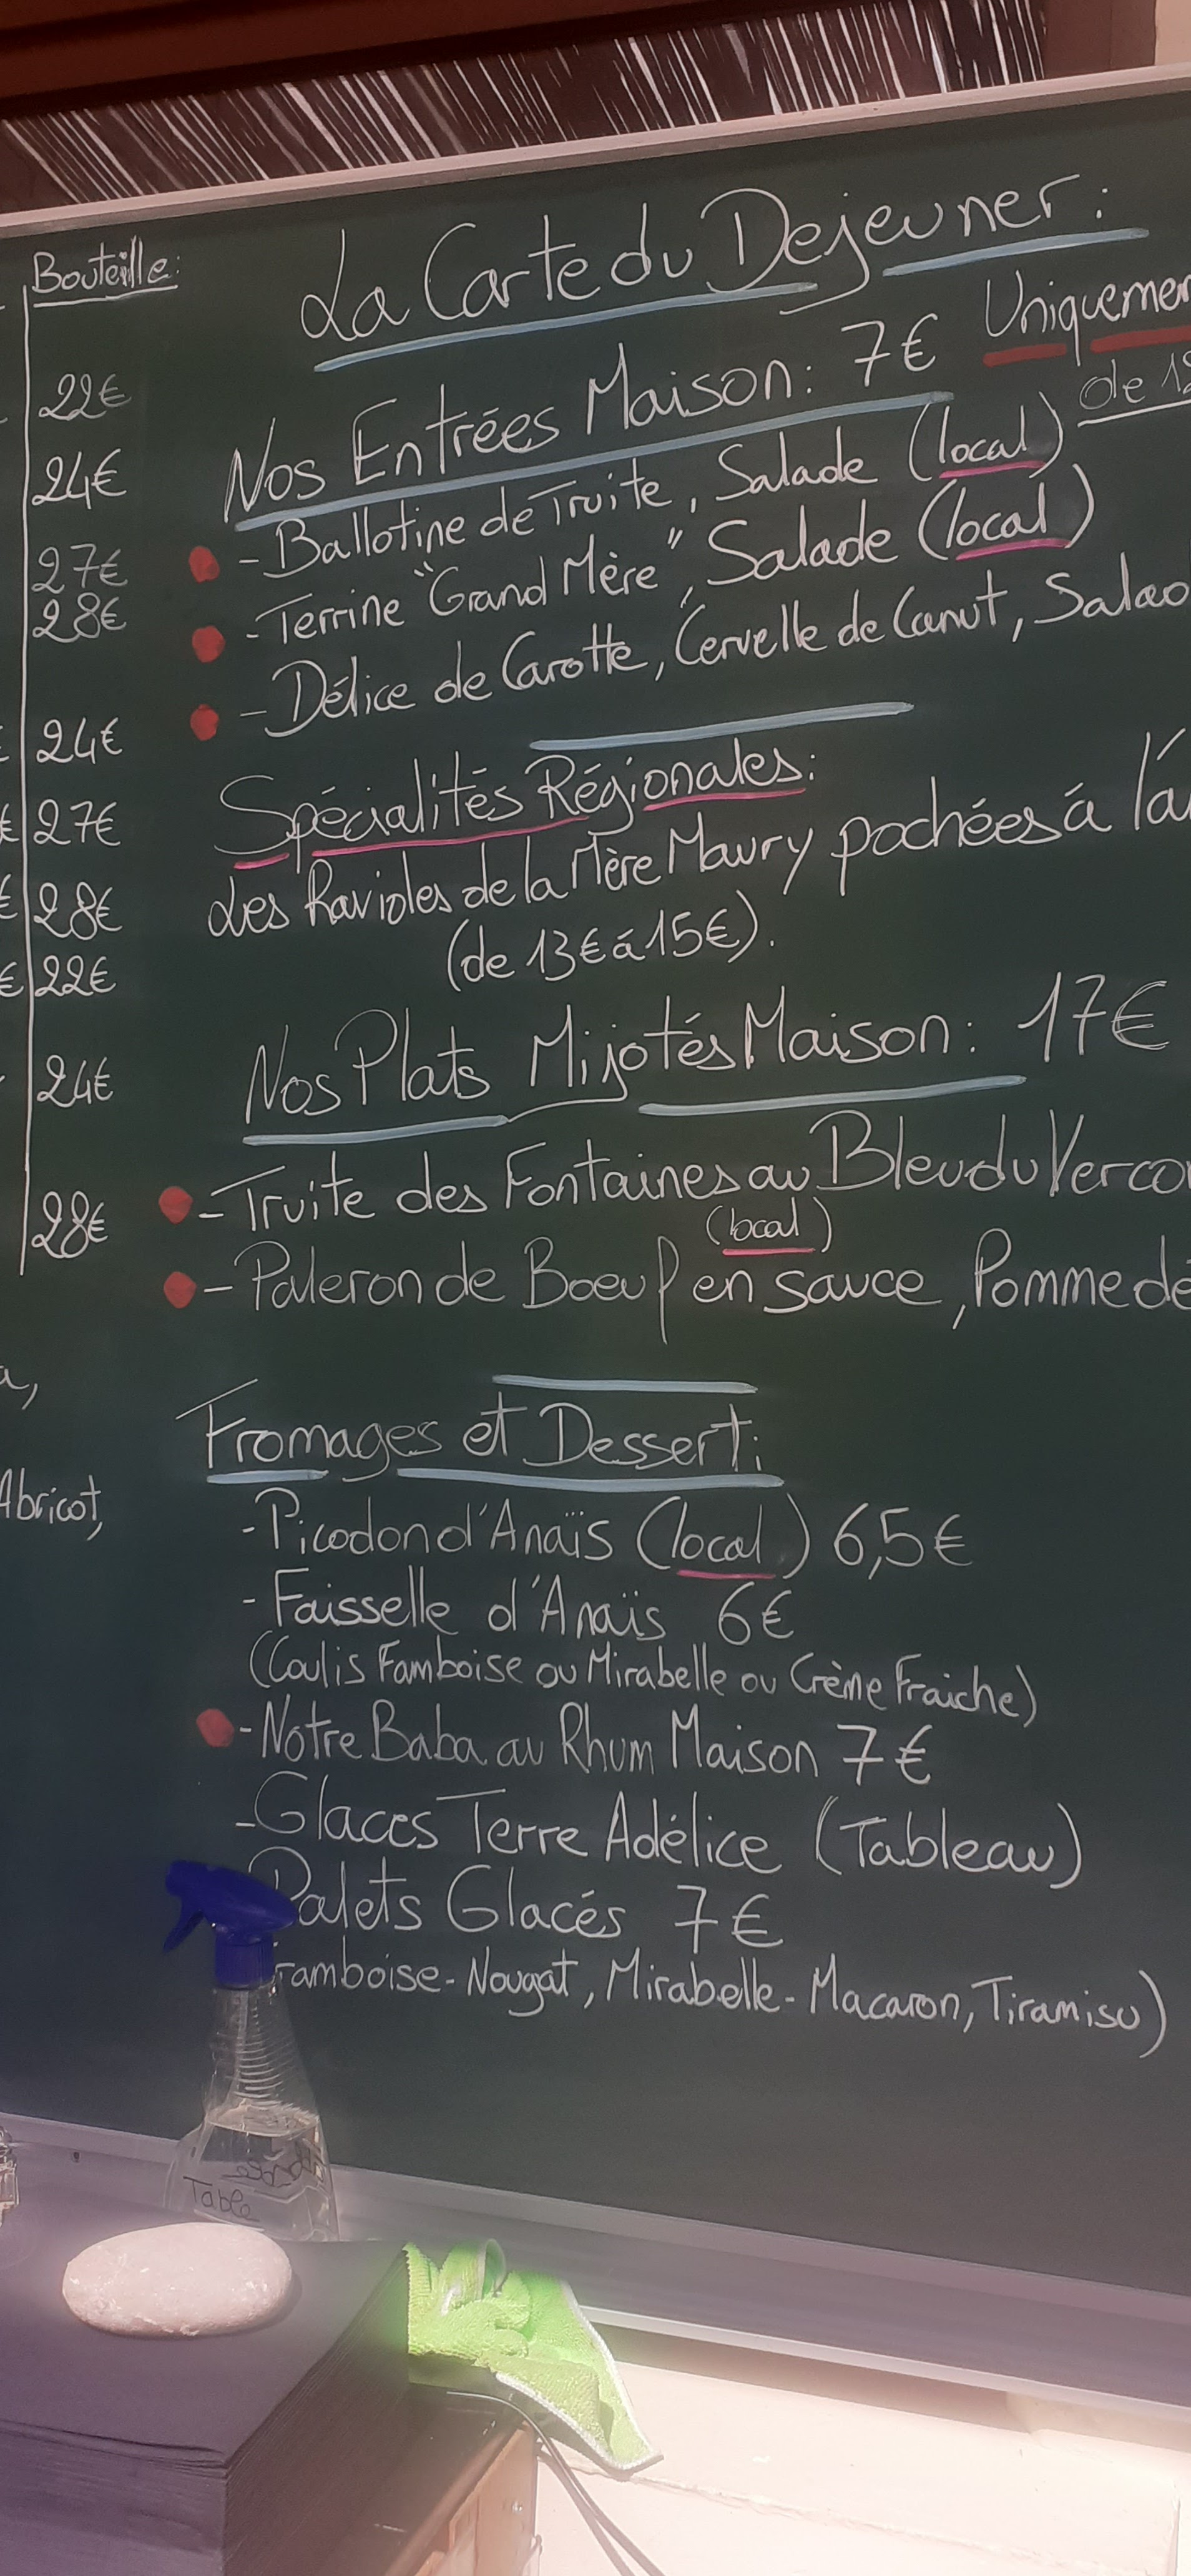 Bouteille:
22€
24€
27€
28€
24€
€ 27€
€ 28€
€ 22€
24€
28€
Abricot,
La Carte du Dejeuner:
Nos Entrées Maison: 7€ Uniquemen
de 12
- Ballotine de Truite, Salade (local)
- Terrine "Grand Mère", Salade (local)
- Délice de Carotte, Cervelle de Canut, Salad
Spécialités Régionales:
Les Ravioles de la Mère Maury pochées á l'a
(de 13€ á 15€).
Nos Plats Mijotés Maison: 17€
- Truite des Fontaines au Bleu du Verco
(local)
- Paleron de Boeuf en sauce, Pomme de
Fromages et Dessert:
- Picodon d'Anaïs (local) 6,5€
- Faisselle d'Anaïs 6€
(Coulis Famboise ou Mirabelle ou Crème Fraiche)
- Notre Baba au Rhum Maison 7€
- Glaces Terre Adélice (Tableau)
Palets Glacés 7€
ramboise-Nougat, Mirabelle-Macaron, Tiramisu)
Table